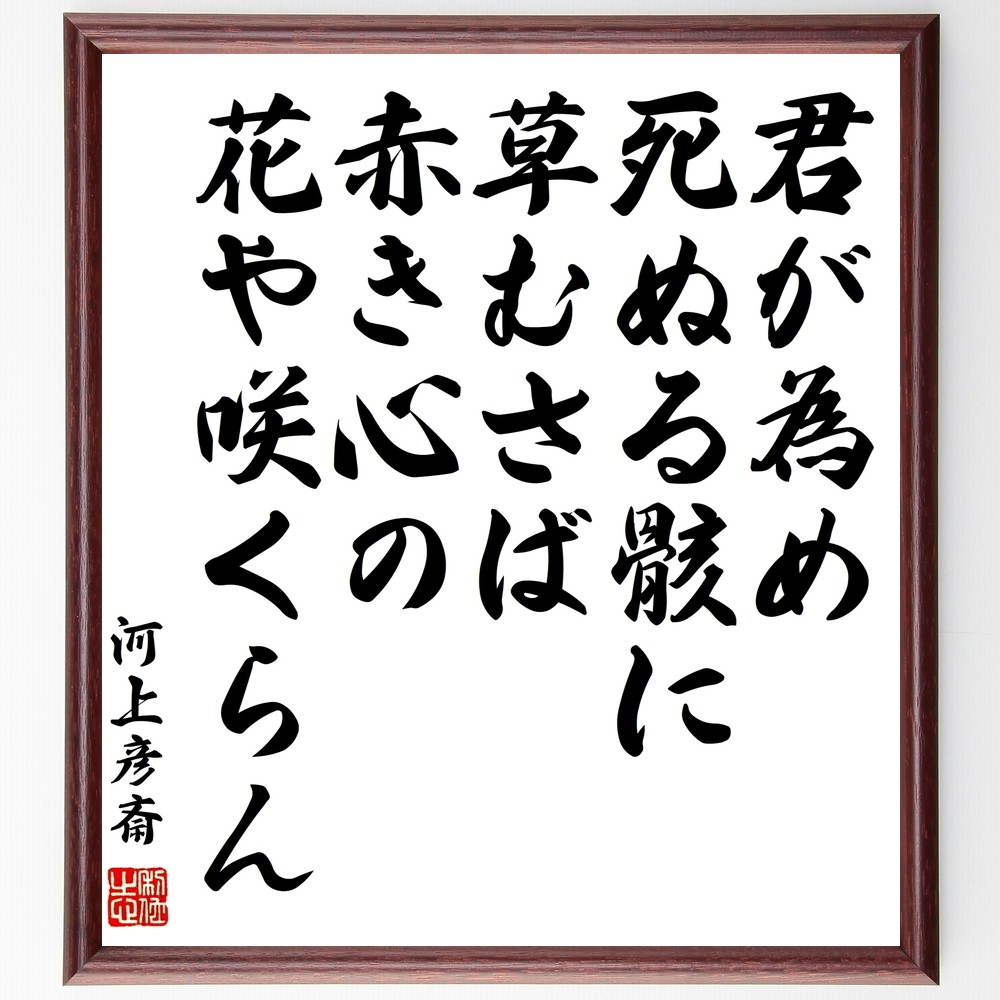 君が為め
死ぬる骸に
草むさば
赤き心の
花や咲くらん
河上彦斎